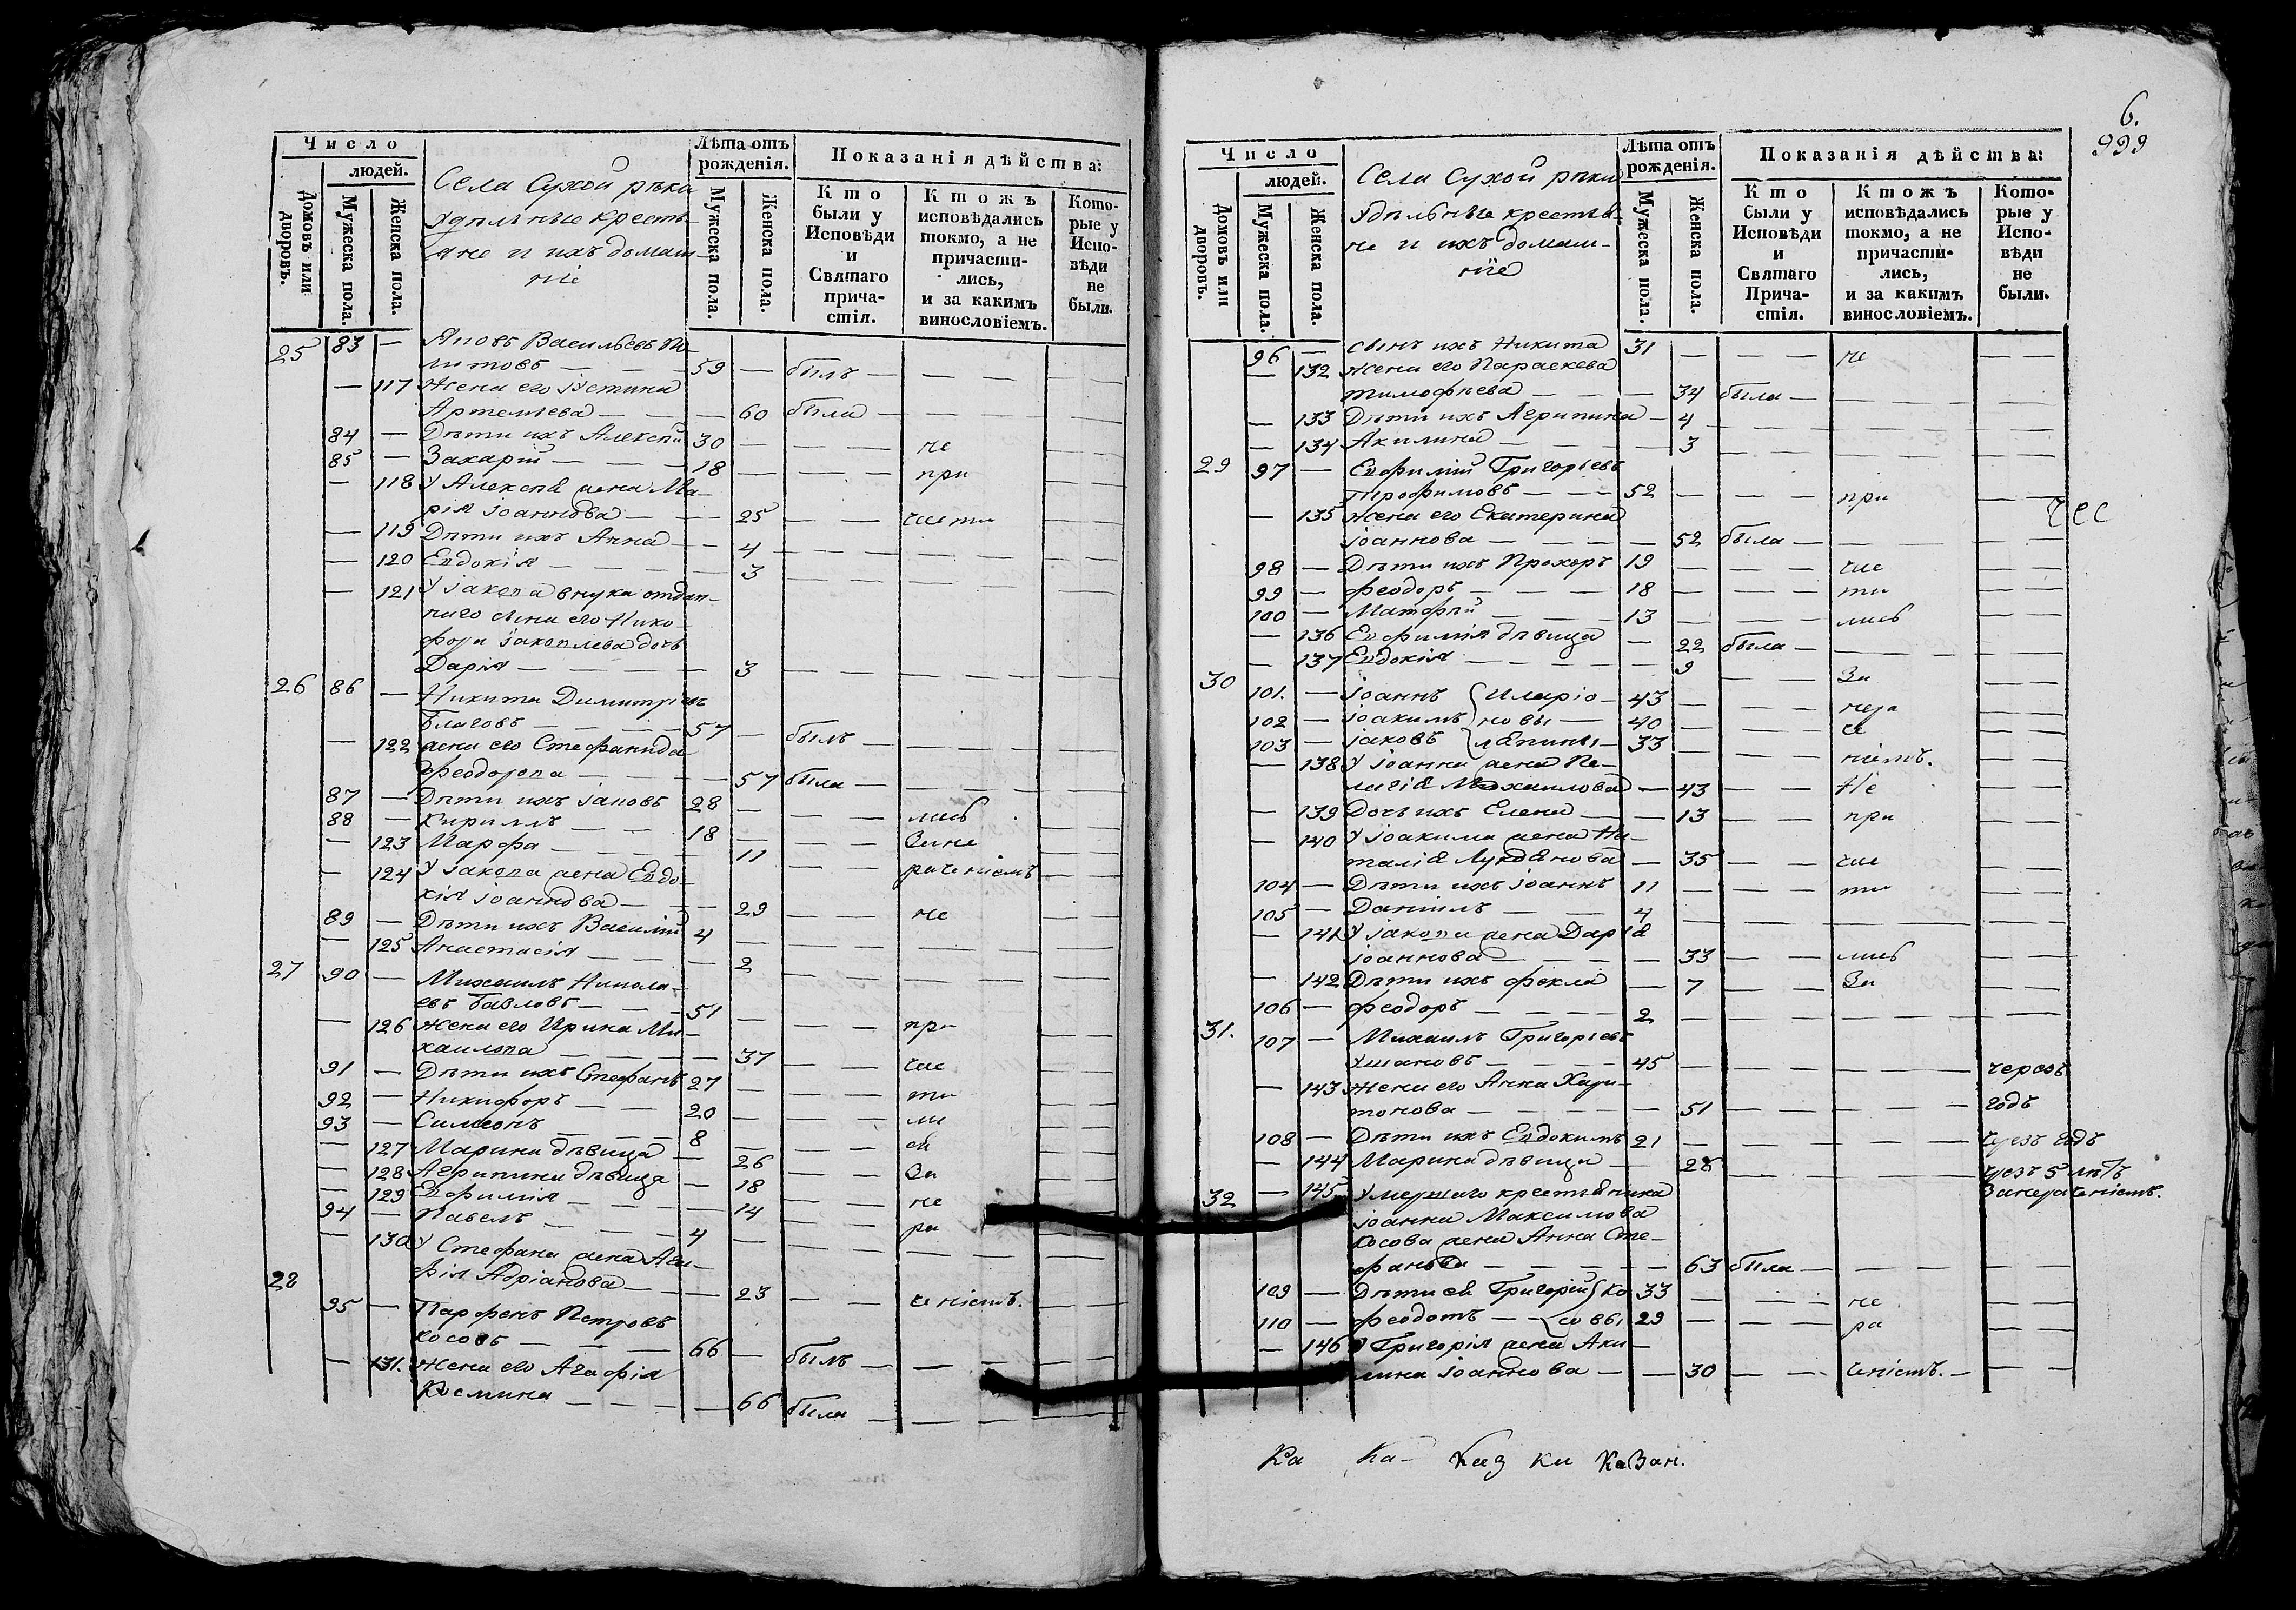 Число
людей.
Домовъ или дворовъ.
Мужеска пола.
Женска пола.
Села Сухой рѣки
удѣльные крестья-
яне и ихъ домаш-
ніе
Лѣта отъ рожденія.
Мужеска пола.
Женска пола.
Показанія дѣйства:
Кто были у Исповѣди и Святаго причастія.
Ктожъ исповѣдались токмо, а не причастились, и за какимъ винословіемъ.
Которые у Исповѣди не были.
25 83 — Васильевъ
59 — былъ — — —
— 117 Жена его Устина
Артемьева — — — 60 была — — —
84 — Дѣти ихъ Алексѣй 30 — — — не — —
85 — Захарій — — — 18 — — — при — —
— 118 У Алексѣя жена Ма-
рія Іоаннова — — — 25 — — части — —
— 119 Дѣти ихъ Анна — — 4 — — — — —
— 120 Евдокія — — — — 3 — — — — —
— 121 У Іакова внука отдан-
наго сына его Нико-
фора Іаковлева дочь
Дарія — — — — 3 — — — — —
26 86 — Никита Димитріевъ
Благовъ — — — 57 — былъ — — — —
— 122 жена его Стефанида
Феодорова — — — 57 была — — — —
87 — Дѣти ихъ Іаковъ 28 — — — лись — —
88 — Кириллъ — — 18 — — — Зане — —
— 123 Марфа — — — — 11 — — раченіемъ — —
— 124 У Іакова жена Евдо-
кія Іоаннова — — — 29 — — не — —
89 — Дѣти ихъ Василій 4 — — — — — —
— 125 Анастасія — — — 2 — — — — —
27 90 — Михаилъ Никола-
евъ Павловъ — — 51 — — — при — —
— 126 Жена его Ирина Ми-
хаилова — — — — 37 — — час — —
91 — Дѣти ихъ Стефанъ 27 — — — ти — —
92 — Никифоръ — — 20 — — — ли — —
93 — Симеонъ — — — 8 — — — ся — —
— 127 Марина дѣвица — 26 — — За — —
— 128 Агрипина дѣвица — 18 — — не — —
— 129 Евфимія — — — — 14 — — ра — —
94 — Павелъ — — — 4 — — — — — —
— 130 У Стефана жена Ага-
фія Адріанова — — — 23 — — ченіемъ. — —
28 95 — Парфенъ Петровъ
Косовъ — — — 66 — былъ — — — —
— 131. Жена его Агафія
Космина — — — — 66 была — — — —
6.
999
Число
людей.
Домовъ или дворовъ.
Мужеска пола.
Женска пола.
Села Сухой рѣки
удѣльные крестья-
не и ихъ домаш-
ніе
Лѣта отъ рожденія.
Мужеска пола.
Женска пола.
Показанія дѣйства:
Кто были у Исповѣди и Святаго Причастія.
Ктожъ исповѣдались токмо, а не причастились, и за какимъ винословіемъ.
Которые у Исповѣди не были.
96 — сынъ ихъ Никита 31 — — — не — —
— 132 Жена его Параскева
тимофѣева — — — 34 была — — — —
— 133 Дѣти ихъ Агрипина — 4 — — — — —
— 134 Акилина — — — 3 — — — — —
29 97 — Евфимій Григорьевъ
Трофимовъ — — — 52 — — — при — —
— 135 Жена его Екатерина
Іоаннова — — — — 52 была — — — —
98 — Дѣти ихъ Прохоръ 19 — — — час — —
99 — Феодоръ — — — 18 — — — ти — —
100 — Матфѣй — — — 13 — — — лись — —
— 136 Евфимія дѣвица — 22 была — — — —
— 137 Евдокія — — — — 9 — — За — —
30 101. — Іоаннъ { Иларіо- 43 — — — нера — —
102 — Іоакимъ } новы — 40 — — — че — —
103 — Іаковъ } Ляпины — 33 — — — ніемъ. — —
— 138 У Іоанна жена Пе-
лагія Михаилова — 43 — — Не — —
— 139 Дочь ихъ Елена — — 13 — — при — —
— 140 У Іоакима жена На-
талія Лукьянова — 35 — — час — —
104 — Дѣти ихъ Іоаннъ 11 — — — ти — —
105 — Даніилъ — — 4 — — — — — —
— 141 У Іакова жена Дарія
Іоаннова — — — — 33 — — лись — —
— 142 Дѣти ихъ Фекла — 7 — — За — —
106 — Феодоръ — — — — 2 — — — — — —
31. 107 — Михаилъ Григорьевъ
Ушаковъ — — — 45 — — — — — черезъ
— 143 Жена его Анна Хари-
тонова — — — — — 51 — — — — годъ
108 — Дѣти ихъ Евдокимъ 21 — — — — — чрезъ годъ
— 144 Марина дѣвица — — 28 — — — — чрезъ 5 лѣтъ
Занераченіемъ.
32 — 145 Умершаго крестьянина
Іоанна Максимова
Косова жена Анна Сте-
фанова — — — — — 63 была — — — —
109 — Дѣти ея Григорій } Ко 33 — — — не — —
110 — Феодотъ — — { совы 29 — — — ра — —
— 146 У Григорія жена Аки-
лина Іоаннова — — — 30 — — ченіемъ. — — —
Ка Ка- Каз ки Казан.